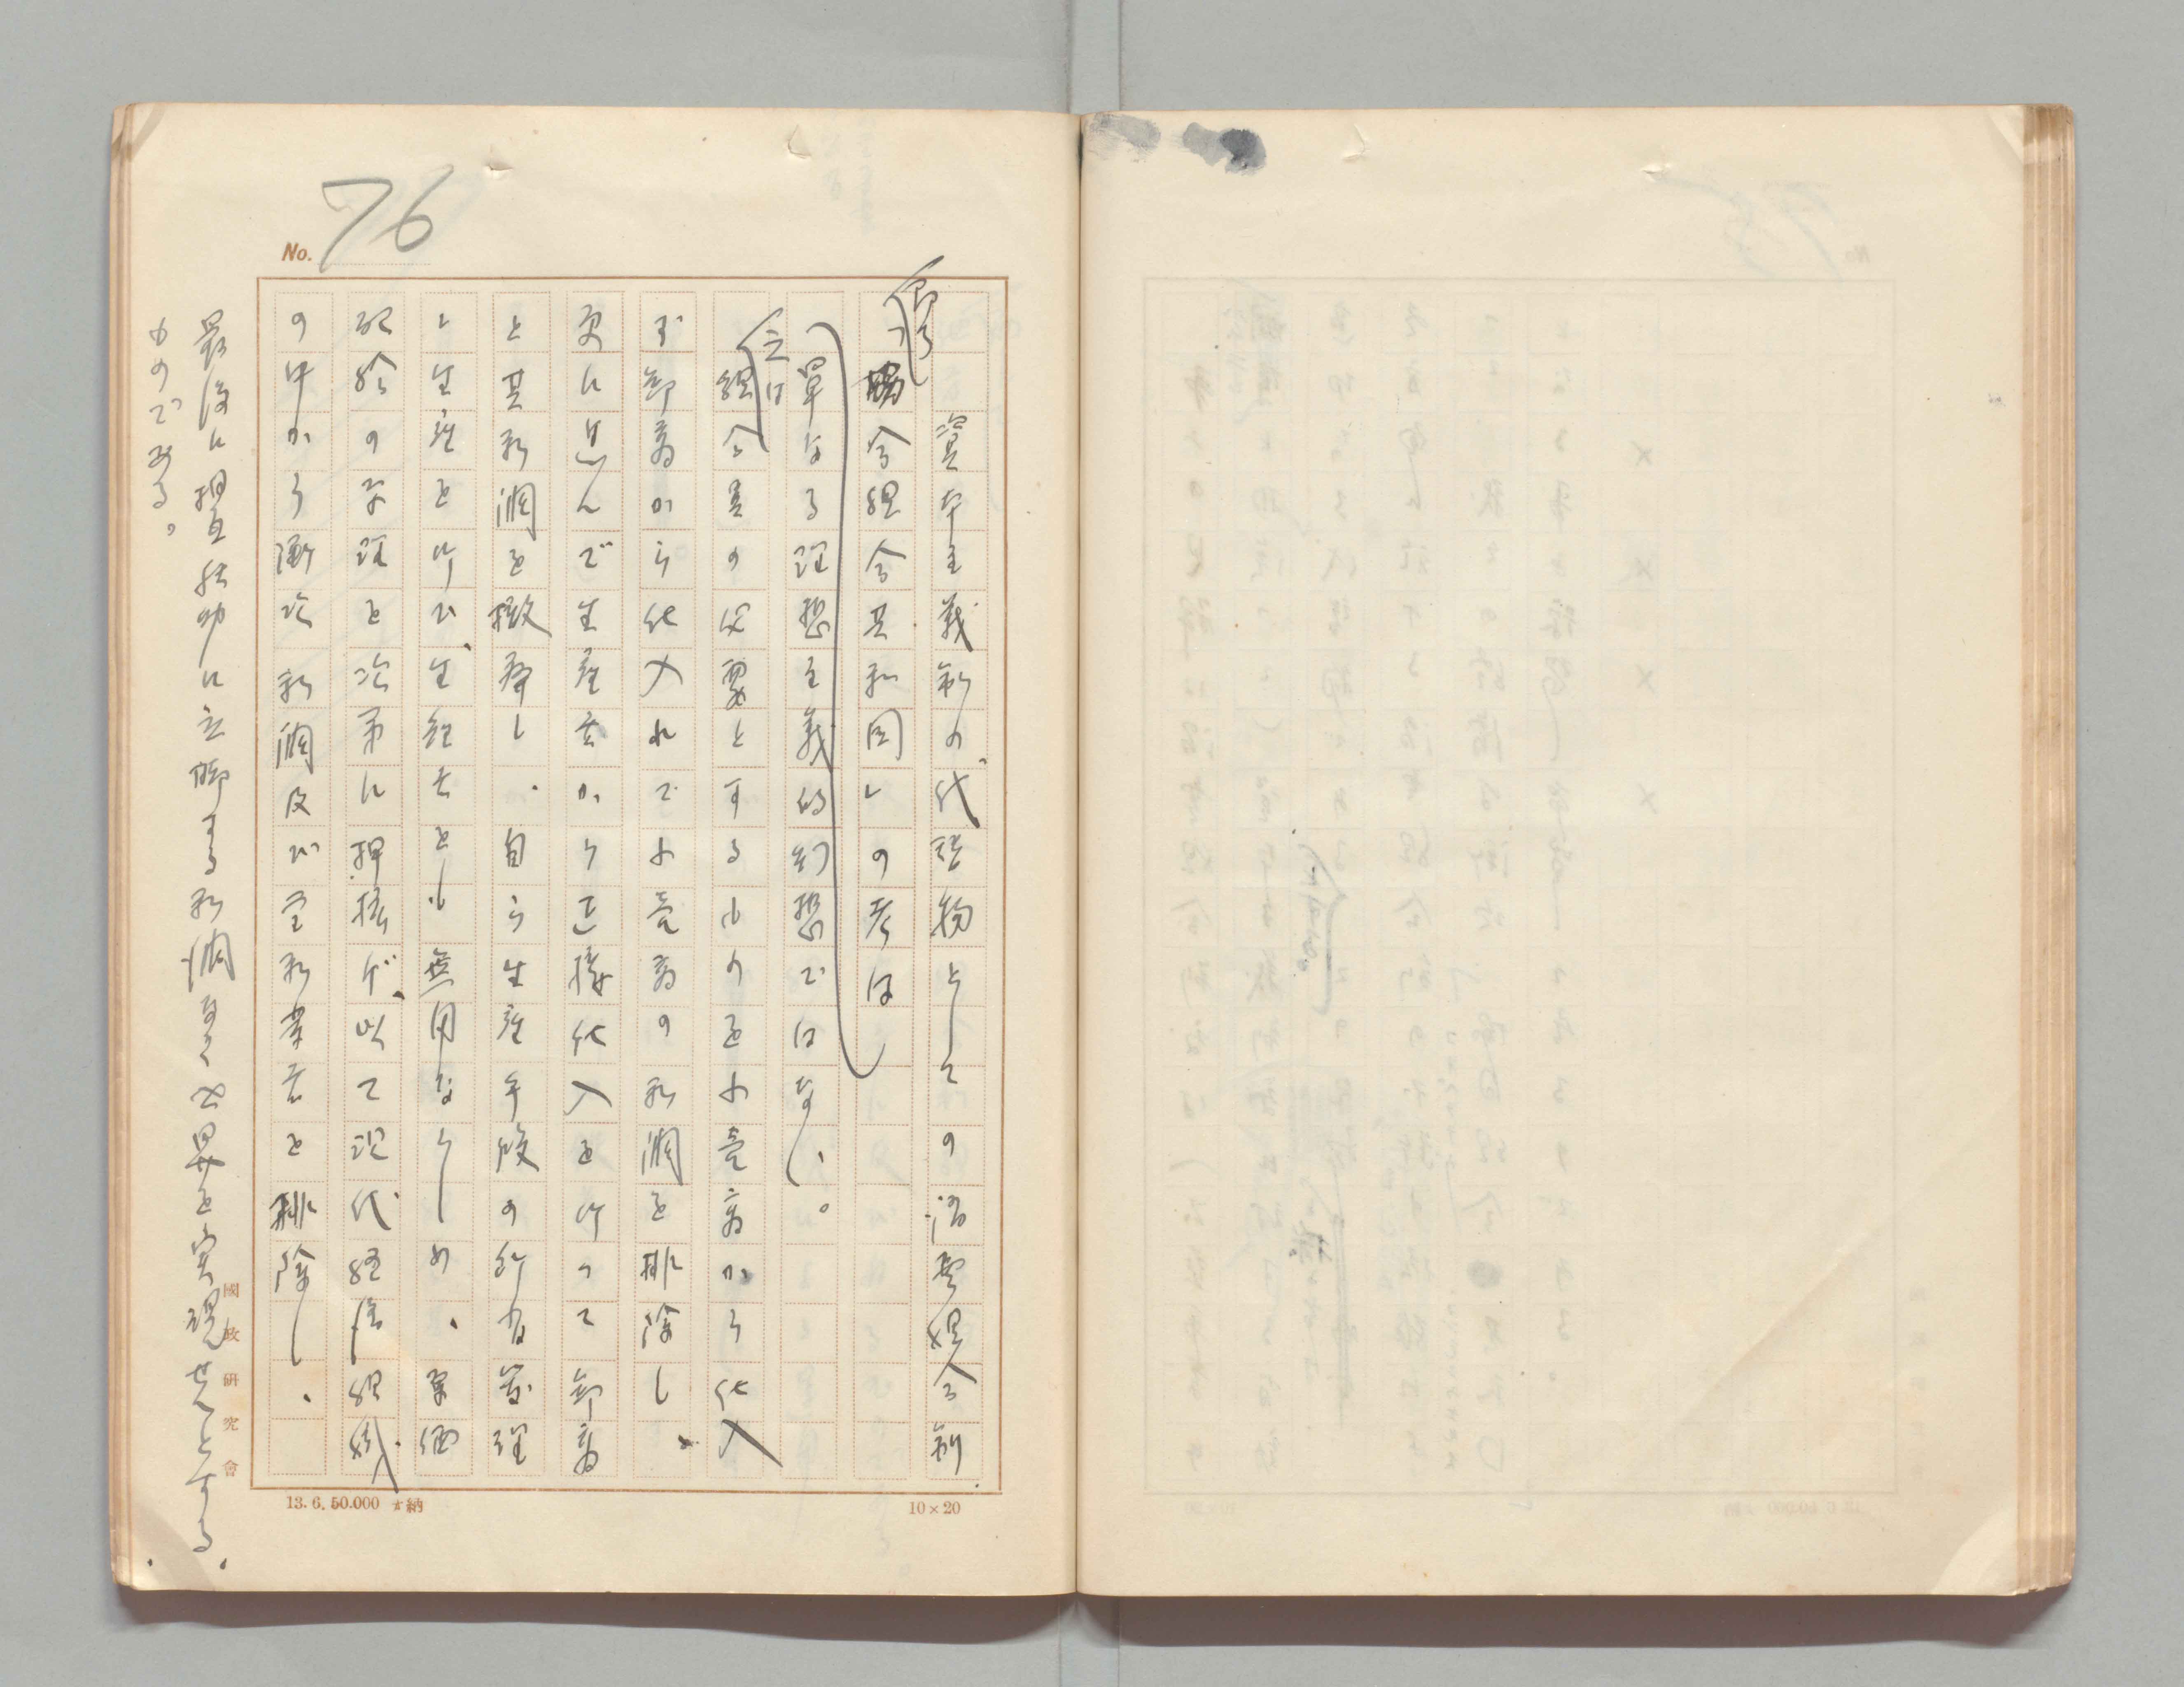 No. 76
資本主義制の、代弁物としての消費組合制
即ち
協今組合共和国しの考は
単なる理想主義的幻想ではない。
云は
組合員の必要とするものを小売商から仕入
ず卸商から仕入れて小売商の利潤を排除し、
更に進んで生産者から直接仕入を行って卸商
と其利潤を撤廃し、自ら生産手段の所有管理
し生産を行ひ、生経者をも無用ならしめ、原価
配給の原理を次第に押拡げ、以て現代経済組織
の中から漸次利潤及び営利業者を排除し、
最後に相互扶助に立脚する利潤なき世界を実現せんとする
ものである。
國政研究會
13.6.50.000 納
10×20